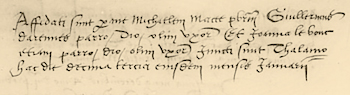 Affidati sunt p me Michaelem Macee pbrm Guillermus
darennes parro, Dio, olim vxor Et Joanna le bouc
etiam parro, dio, olim vxor Juncti sunt Thalamo
hac die decima tercia eiusdem mensis Januarii